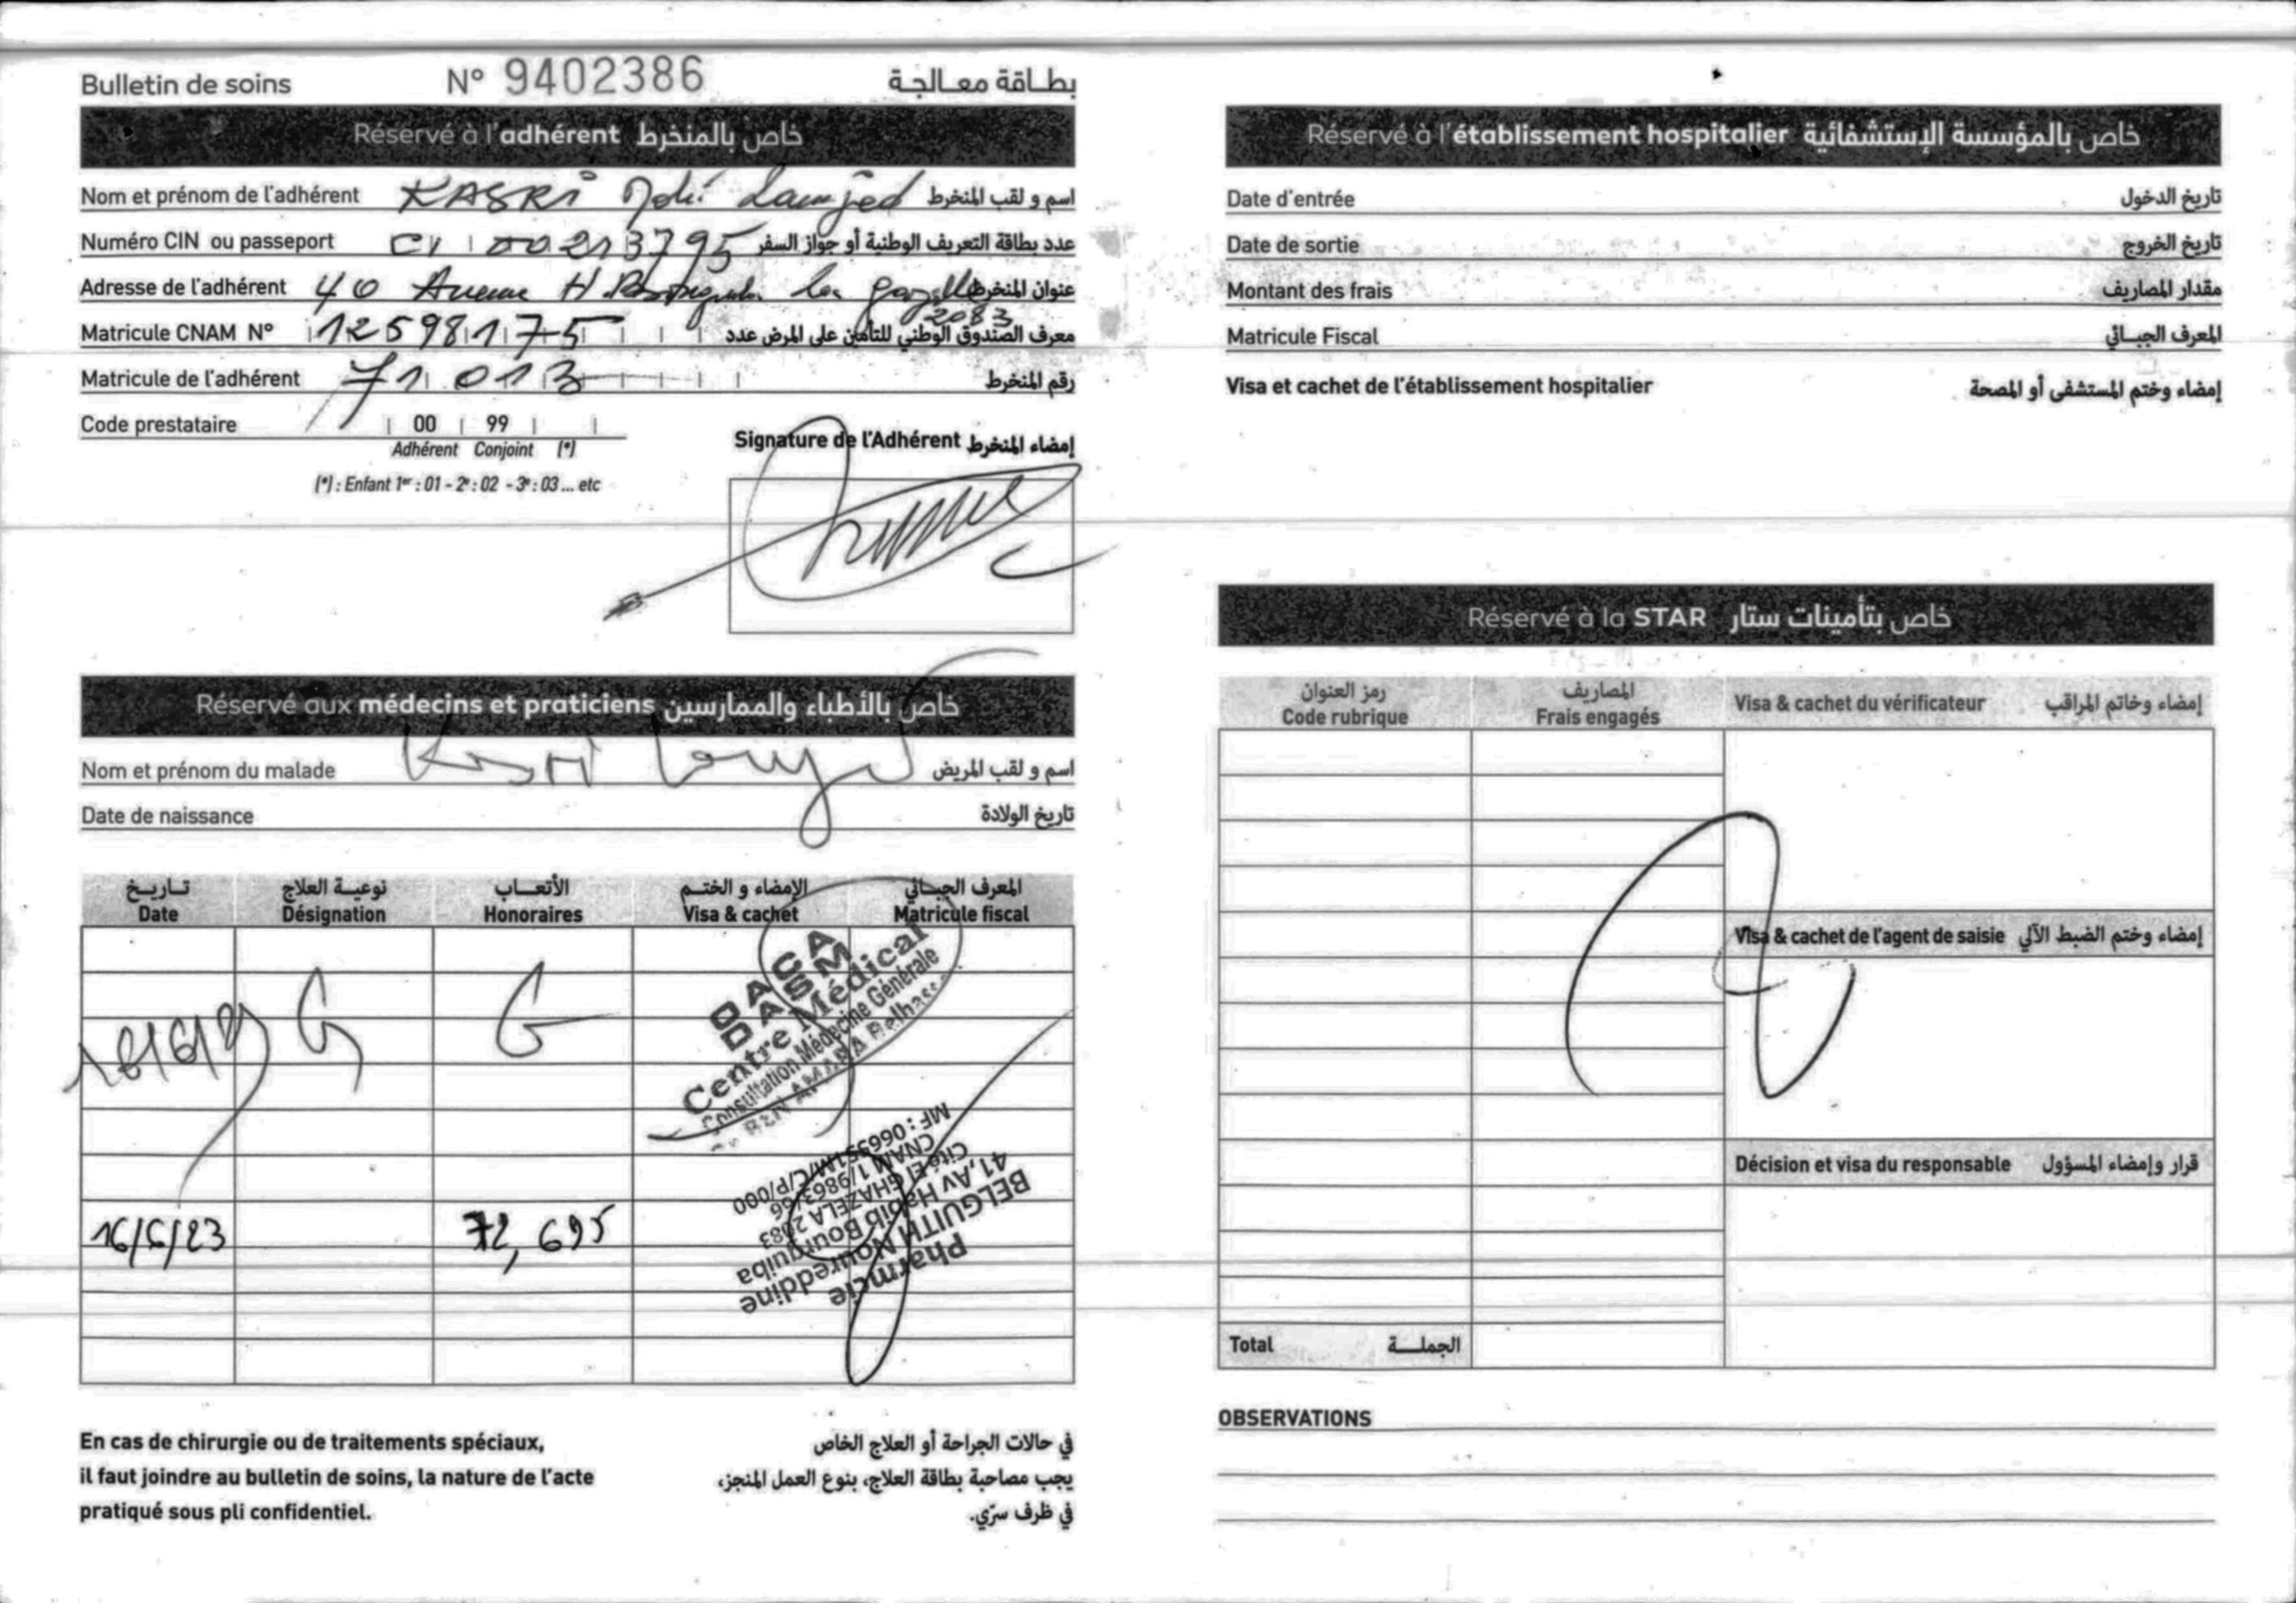 Bulletin de soins N° 9402386 بطاقة معالجة
Réservé à l'adhérent خاص بالمنخرط
Nom et prénom de l'adhérent KASRI Lamjed اسم و لقب المنخرط
Numéro CIN ou passeport 00213795 عدد بطاقة التعريف الوطنية أو جواز السفر
Adresse de l'adhérent 40 Avenue H. Bourguiba la gazelle عنوان المنخرط
2083
Matricule CNAM N° 125981175 معرف الصندوق الوطني للتأمين على المرض عدد
Matricule de l'adhérent 71013 رقم المنخرط
Code prestataire 00 99
Adhérent Conjoint (*)
(*) : Enfant 1er : 01 - 2e : 02 - 3e : 03 ... etc
Signature de l'Adhérent إمضاء المنخرط
Réservé aux médecins et praticiens خاص بالأطباء والممارسين
Nom et prénom du malade Kasri Lamjed اسم و لقب المريض
Date de naissance تاريخ الولادة
تاريخ نوعية العلاج الأتعاب الإمضاء و الختم المعرف الجبائي
Date Désignation Honoraires Visa & cachet Matricule fiscal
G G
OACA
DASM
Centre Médical
Consultation Médecine Générale
Dr BEN AMARA Belhassen
16/6/23 72,695
Pharmacie
BELGUITH Noureddine
41, Av Habib Bourguiba
Cité El GHAZELA 2083
CNAM 1/
MF :
En cas de chirurgie ou de traitements spéciaux,
il faut joindre au bulletin de soins, la nature de l'acte
pratiqué sous pli confidentiel.
في حالات الجراحة أو العلاج الخاص
يجب مصاحبة بطاقة العلاج، بنوع العمل المنجز،
في ظرف سرّي.
Réservé à l'établissement hospitalier خاص بالمؤسسة الإستشفائية
Date d'entrée تاريخ الدخول
Date de sortie تاريخ الخروج
Montant des frais مقدار المصاريف
Matricule Fiscal المعرف الجبائي
Visa et cachet de l'établissement hospitalier إمضاء وختم المستشفى أو المصحة
Réservé à la STAR خاص بتأمينات ستار
رمز العنوان المصاريف
Code rubrique Frais engagés Visa & cachet du vérificateur إمضاء وخاتم المراقب
Visa & cachet de l'agent de saisie إمضاء وختم الضبط الآلي
Décision et visa du responsable قرار وإمضاء المسؤول
Total الجملة
OBSERVATIONS